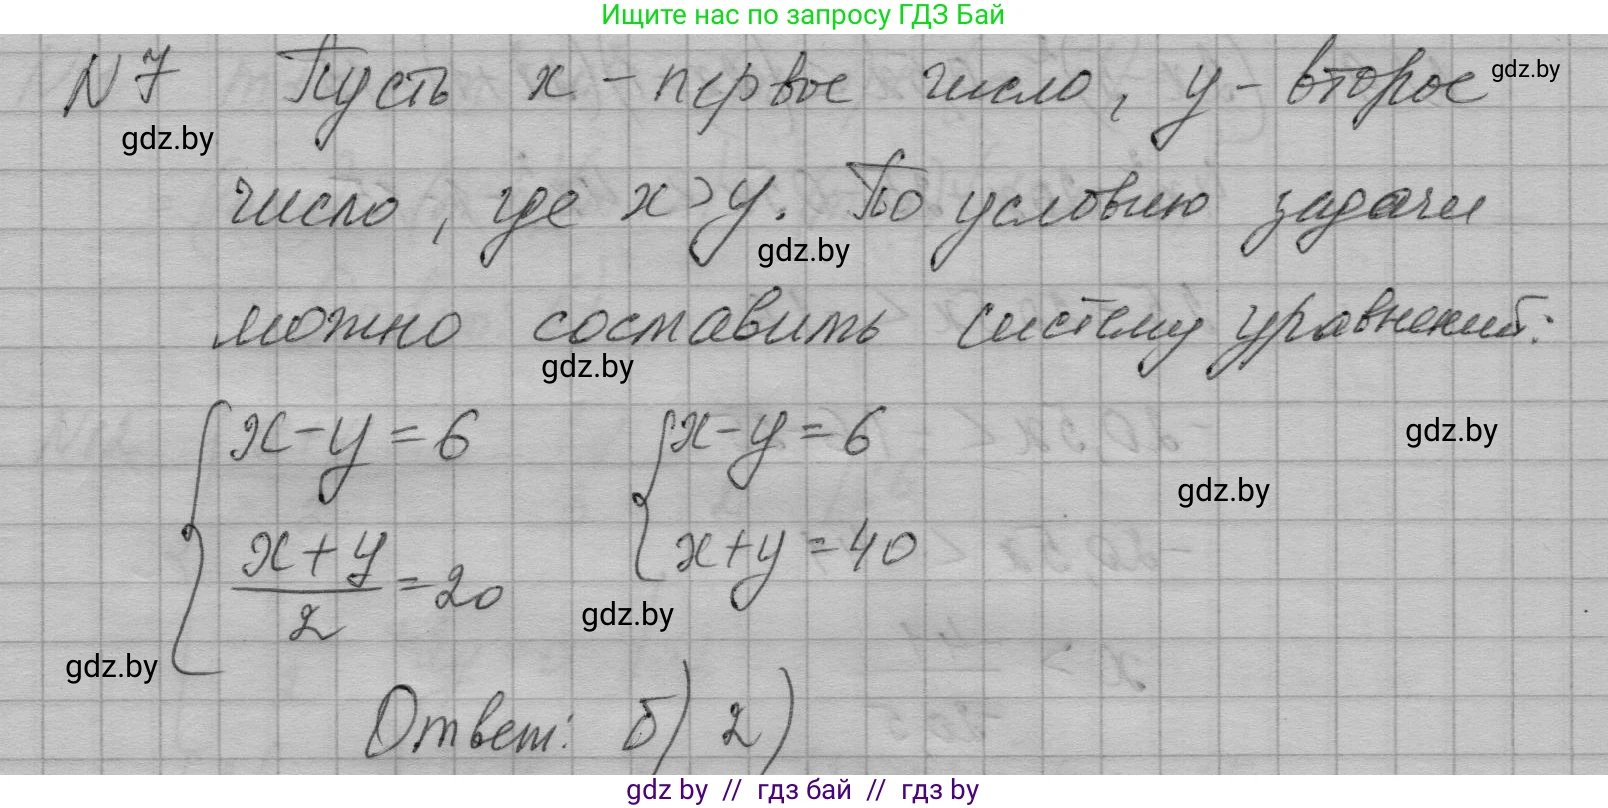 Ищите нас по запросу ГДЗ Бай
N 7 Пусть x - первое число, y - второе
gdz.by
gdz.by
число, где x > y. По условию задачи
gdz.by
можно составить систему уравнений:
gdz.by
{ x - y = 6 { x - y = 6
gdz.by
gdz.by
(x + y)/2 = 20 x + y = 40
gdz.by
gdz.by
Ответ: б) г)
gdz by // гдз бай // гдз by